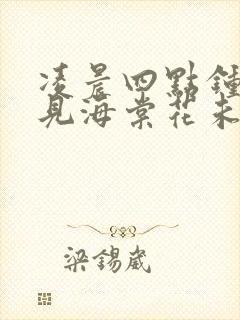 凌晨四點鐘
見海棠花未
梁錫崴